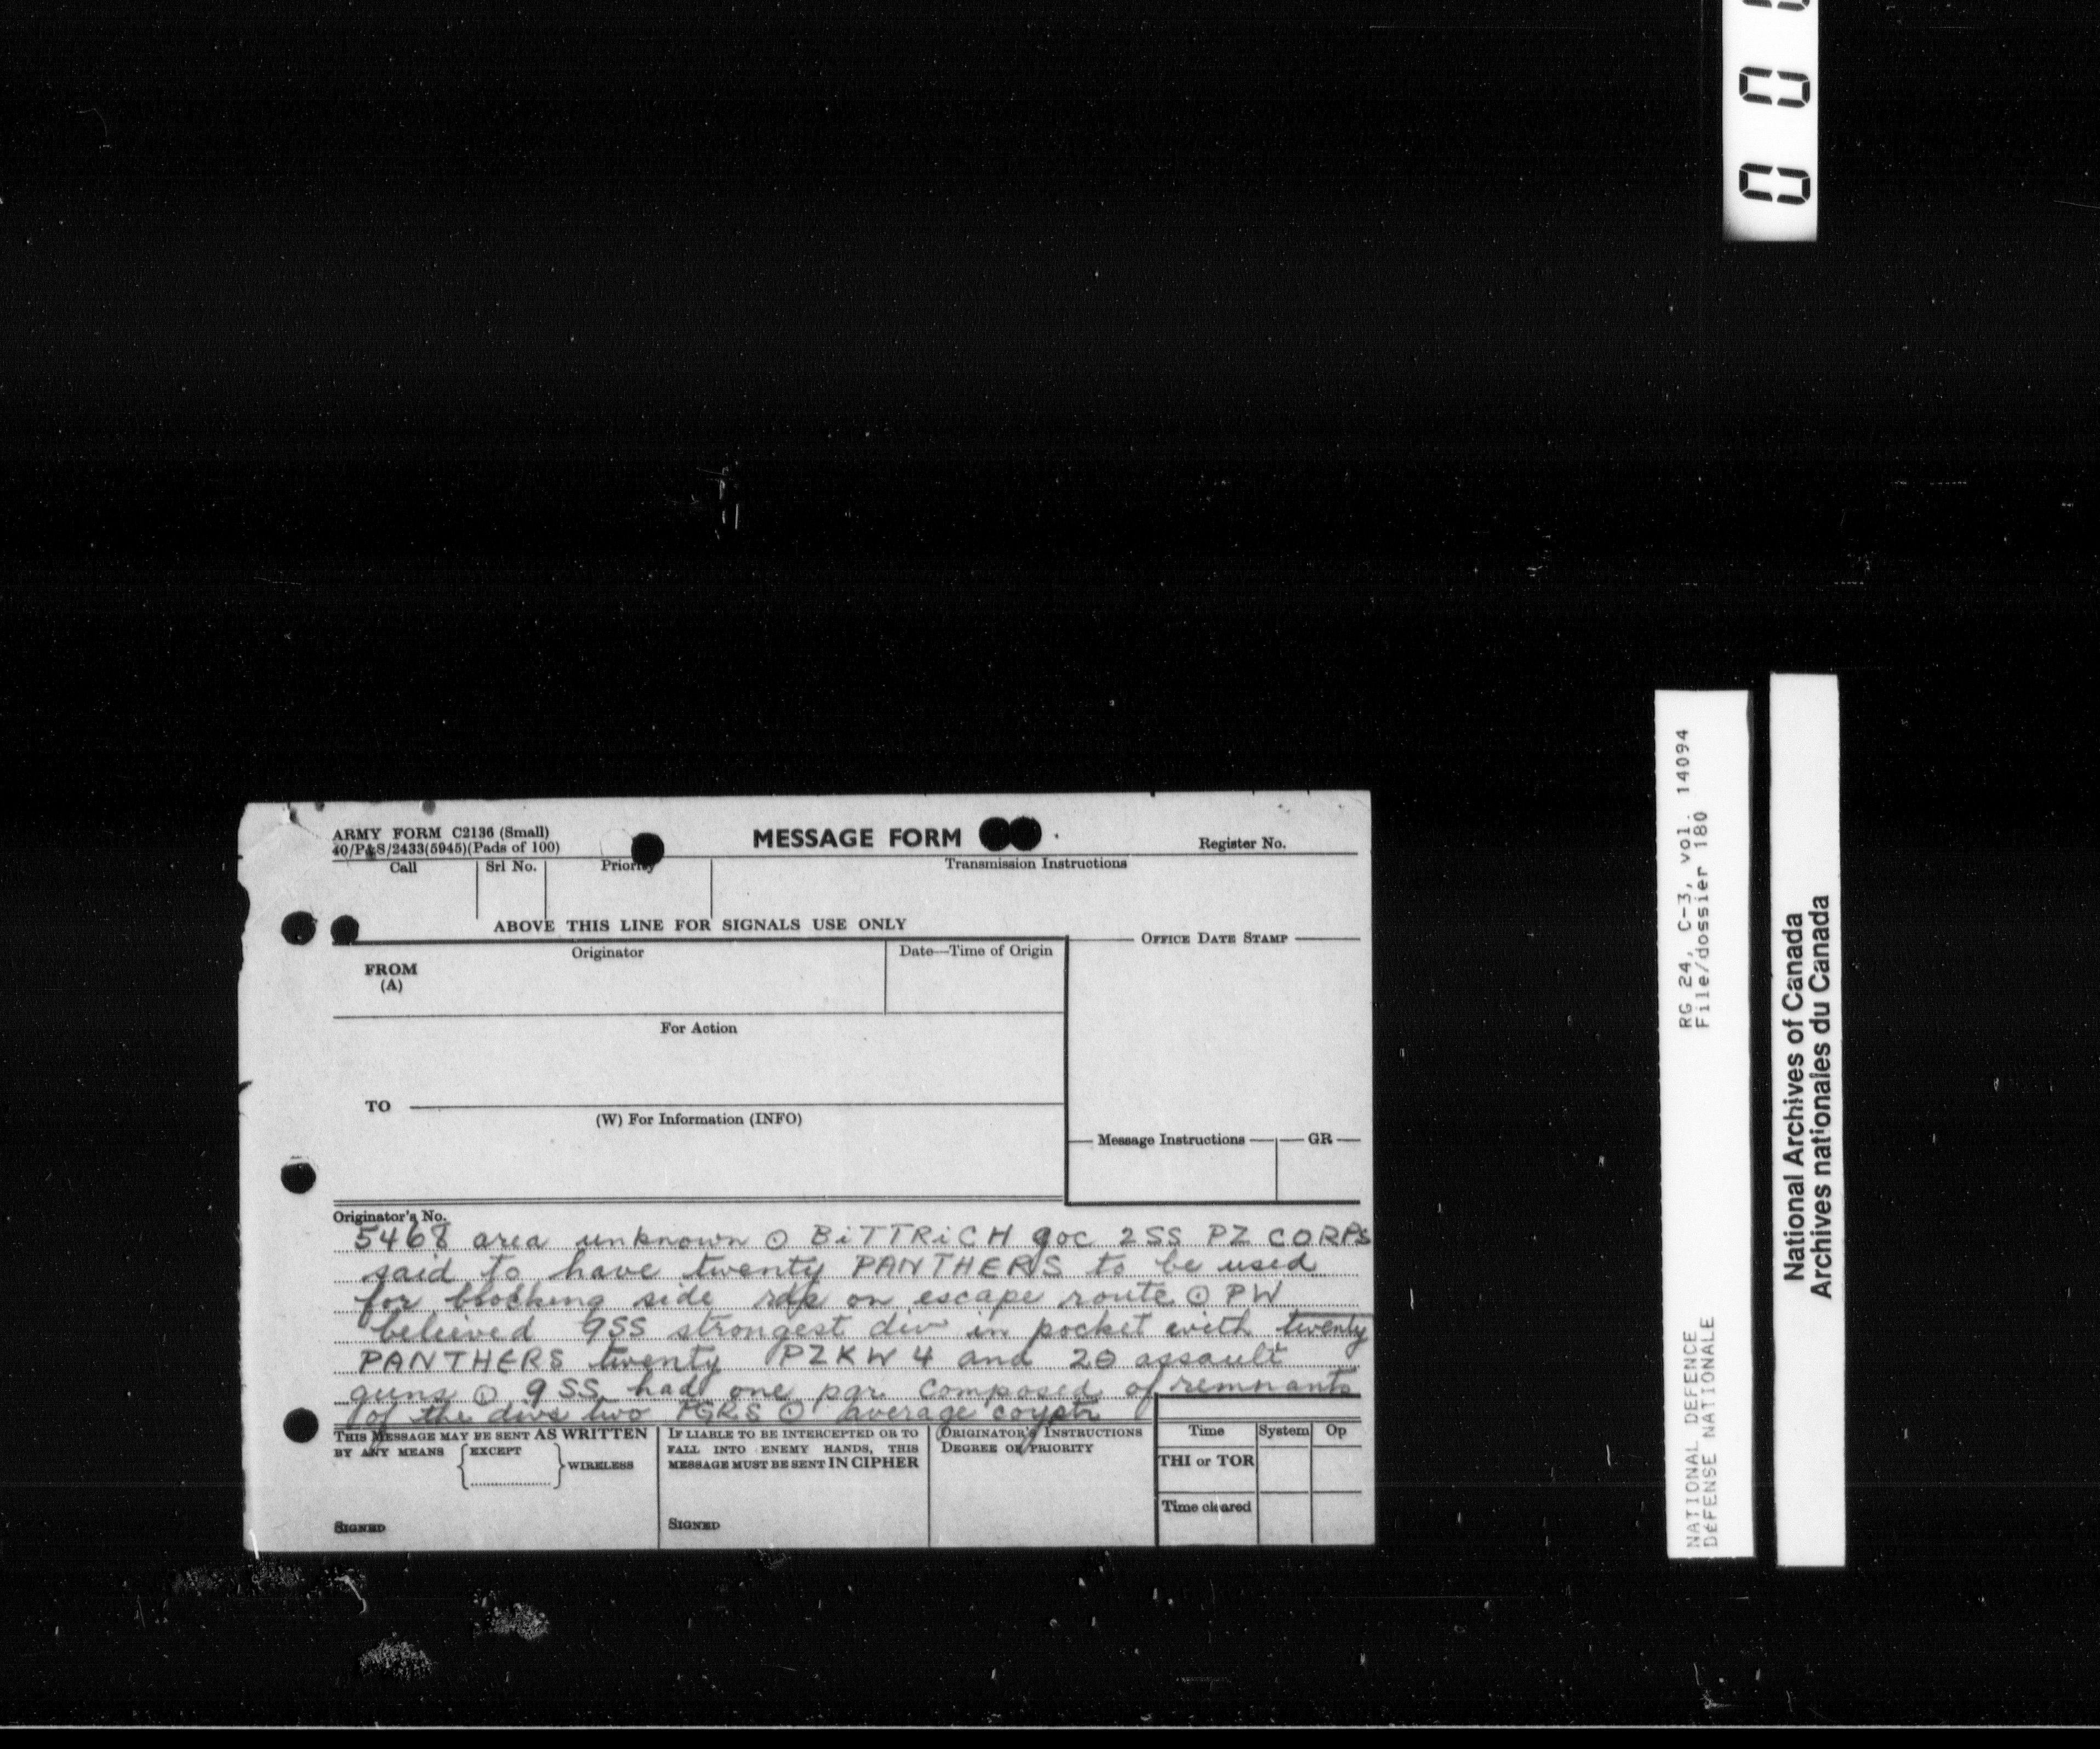 0 0 0
ARMY FORM C2136 (Small)
40/P&S/2433(5945)(Pads of 100)
MESSAGE FORM
Register No.
Call
Srl No.
Priority
Transmission Instructions
ABOVE THIS LINE FOR SIGNALS USE ONLY
FROM
(A)
Originator
Date—Time of Origin
OFFICE DATE STAMP
For Action
TO
(W) For Information (INFO)
Message Instructions
GR
Originator's No.
5468 area unknown ⊙ BiTTRiCH goc 2SS PZ CORPS
said to have twenty PANTHERS to be used
for blocking side rds on escape route ⊙ PW
believed 9SS strongest div in pocket with twenty
PANTHERS twenty PZKW 4 and 20 assault
guns ⊙ 9SS had one pgr composed of remnants
of the divs two PGRS ⊙ average coy str
THIS MESSAGE MAY BE SENT AS WRITTEN
BY ANY MEANS
EXCEPT
WIRELESS
SIGNED
IF LIABLE TO BE INTERCEPTED OR TO
FALL INTO ENEMY HANDS, THIS
MESSAGE MUST BE SENT IN CIPHER
SIGNED
ORIGINATOR'S INSTRUCTIONS
DEGREE OF PRIORITY
Time
System
Op
THI or TOR
Time cleared
RG 24, C-3, vol. 14094
File/dossier 180
NATIONAL DEFENCE
DÉFENSE NATIONALE
National Archives of Canada
Archives nationales du Canada